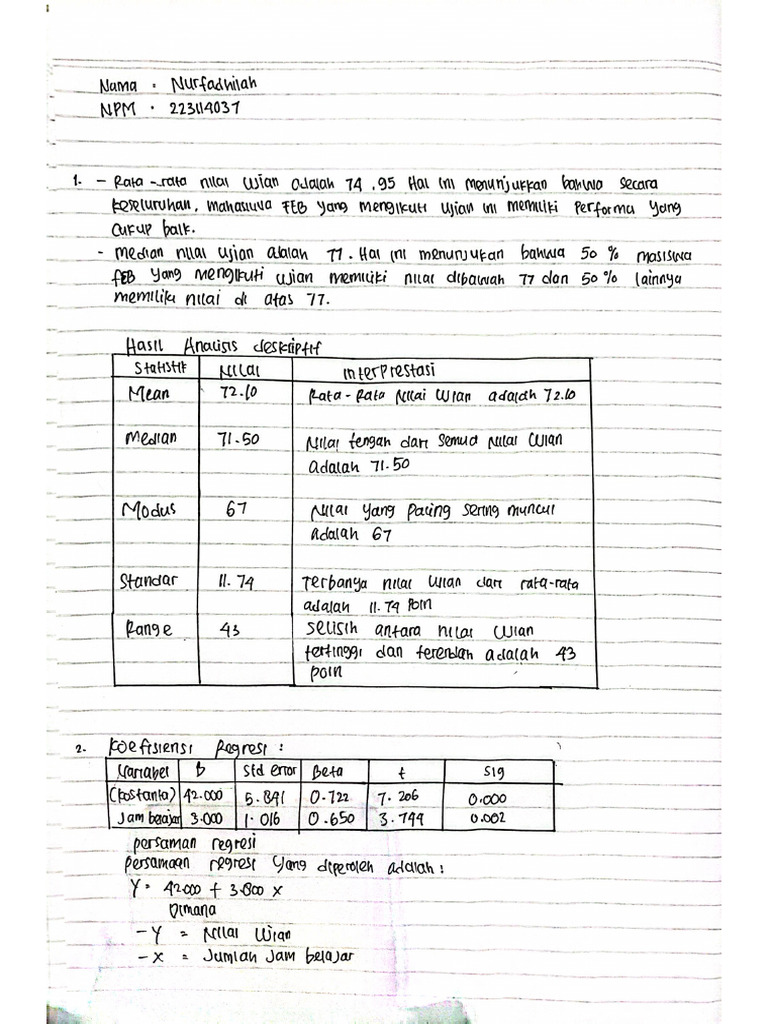 Nama : Nurfadhilah
NPM . 223114037
1. - Rata-rata nilai Ujian adalah 74.95 Hal ini menunjukkan bahwa secara
keseluruhan, mahasiswa FEB yang mengikuti Ujian ini memiliki performa yang
cukup baik.
- median nilai ujian adalah 77. Hal ini menunjukan bahwa 50 % masiswa
FEB yang mengikuti ujian memiliki nilai dibawah 77 dan 50 % lainnya
memiliki nilai di atas 77.
Hasil Analisis deskriptif
Statistik Nilai interprestasi
Mean 72.10 Rata-Rata Nilai Ujian adalah 72.10
Median 71.50 Nilai tengah dari semua Nilai Ujian
adalah 71.50
Modus 67 Nilai yang paling sering muncul
adalah 67
Standar 11.74 Terbanya nilai Ujian dari rata-rata
adalah 11.74 Poin
Range 43 selisih antara nilai Ujian
tertinggi dan terendah adalah 43
poin
2. Koefisiensi Regresi :
Variabel B Std error Beta t Sig
(Kostanta) 42.000 5.841 0.722 7.206 0.000
Jam belajar 3.000 1.016 0.650 3.744 0.002
persaman regresi
persamaan regresi yang diperoleh adalah :
Y = 42.000 + 3.800 x
Dimana
- Y = Nilai Ujian
- x = Jumlah Jam belajar